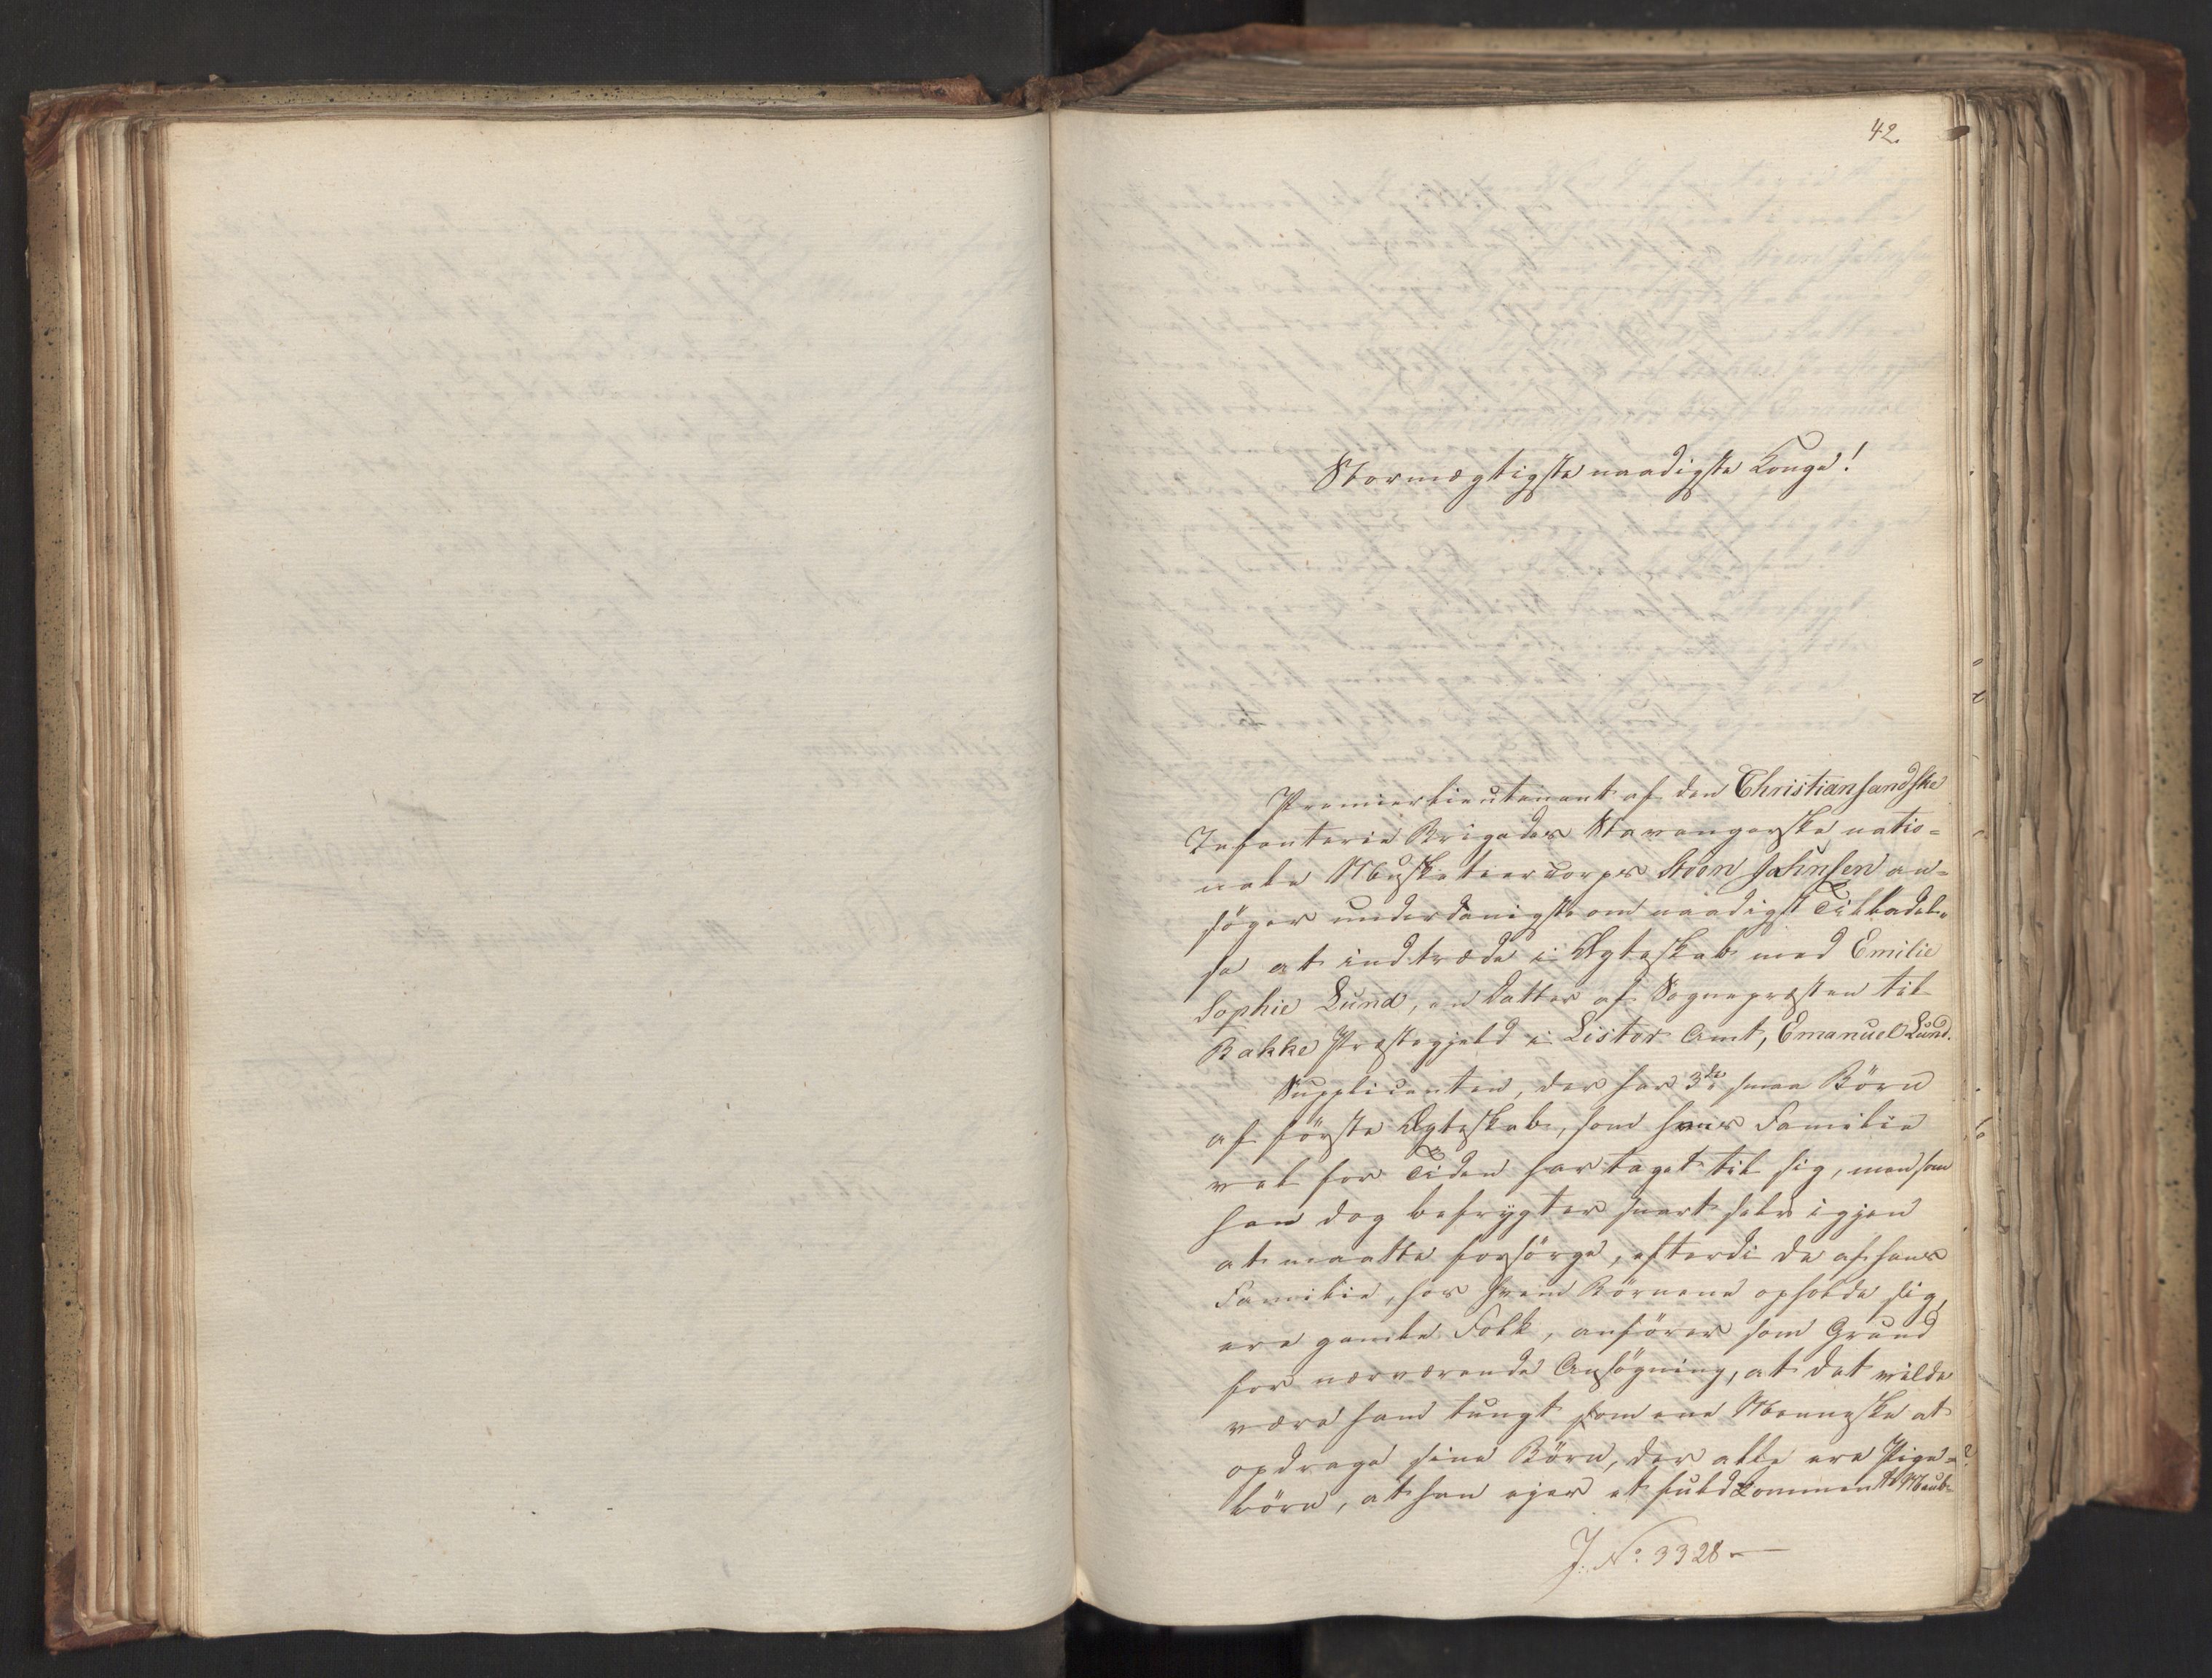 42.
Stormægtigste naadigste Konge!
Premierlieutenant af den Christiansandske
Infanterie Brigades Stavangerske natio=
nale Musketeercorps Steen Jahnsen an=
søger underdanigst om naadigst Tilladel-
se at indtræde i Ægteskab med Emilie
Sophie Lund, en Datter af Sognepræsten til
Bakke Præstegjeld i Lister Amt, Emanuel Lund.
Supplicanten, der har 3de smaa Børn
af første Ægteskab, som hans Familie
vel for Tiden har taget til sig, men som
han dog befrygter snart selv igjen
at maatte forsørge, efterdi de af hans
Familie, hos hvem Børnene opholde sig,
ere gamle Folk, anfører som Grund
for nærværende Ansøgning, at det vilde
være ham tungt som ene Menneske at
opdrage sine Børn, der alle ere Pige=
børn, at han ejer et fuldkomment Meub-
J. No. 3328